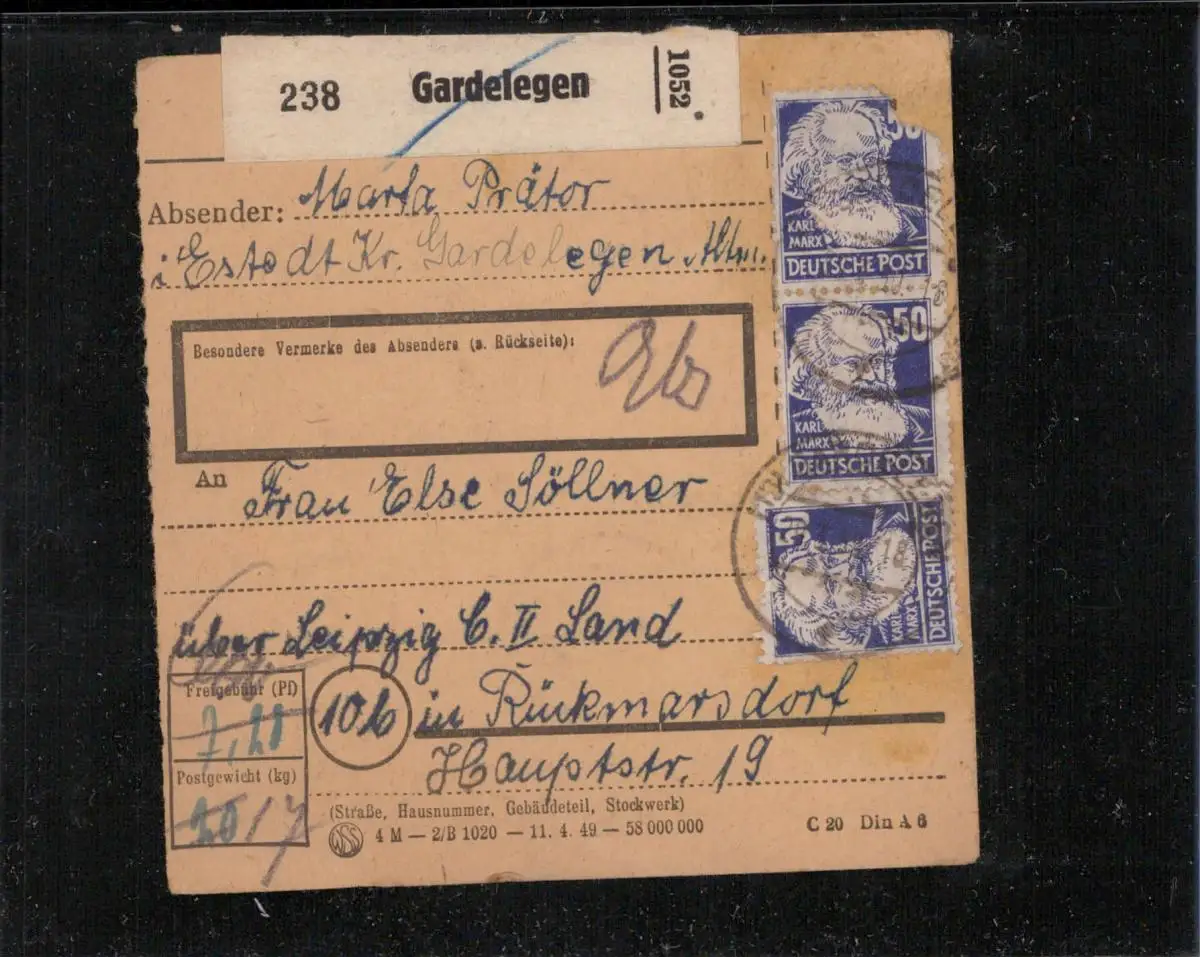 238 Gardelegen 1052
Absender: Marta Prätor
i Estedt Kr. Gardelegen Altm.
Besondere Vermerke des Absenders (s. Rückseite):
An Frau Else Söllner
über Leipzig C. II Land
10b in Rückmarsdorf
Hauptstr. 19
Freigebühr (Pf)
Postgewicht (kg)
20 17
(Straße, Hausnummer, Gebäudeteil, Stockwerk)
WSS 4 M — 2/B 1020 — 11. 4. 49 — 58 000 000
C 20 Din A 6
50
KARL
MARX
DEUTSCHE POST
50
KARL
MARX
DEUTSCHE POST
50
KARL
MARX
DEUTSCHE POST